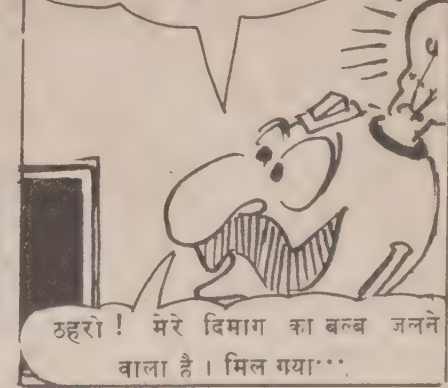 ठहरो ! मेरे दिमाग का बल्ब जलने
वाला है । मिल गया···